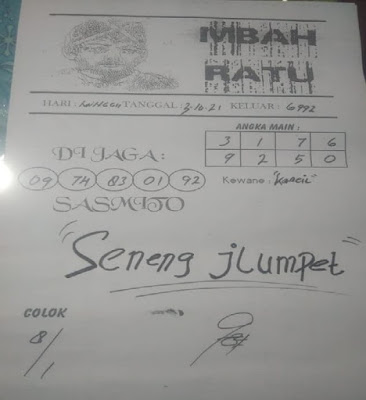 MBAH
RATU
HARI : MINGGU TANGGAL : 3-10-21 KELUAR : 6992
ANGKA MAIN :
3 1 7 6
9 2 5 0
DI JAGA :
09 74 83 01 92
Kewane : "KANCIL"
SASMITO
"Seneng jLumpet"
COLOK
8/1